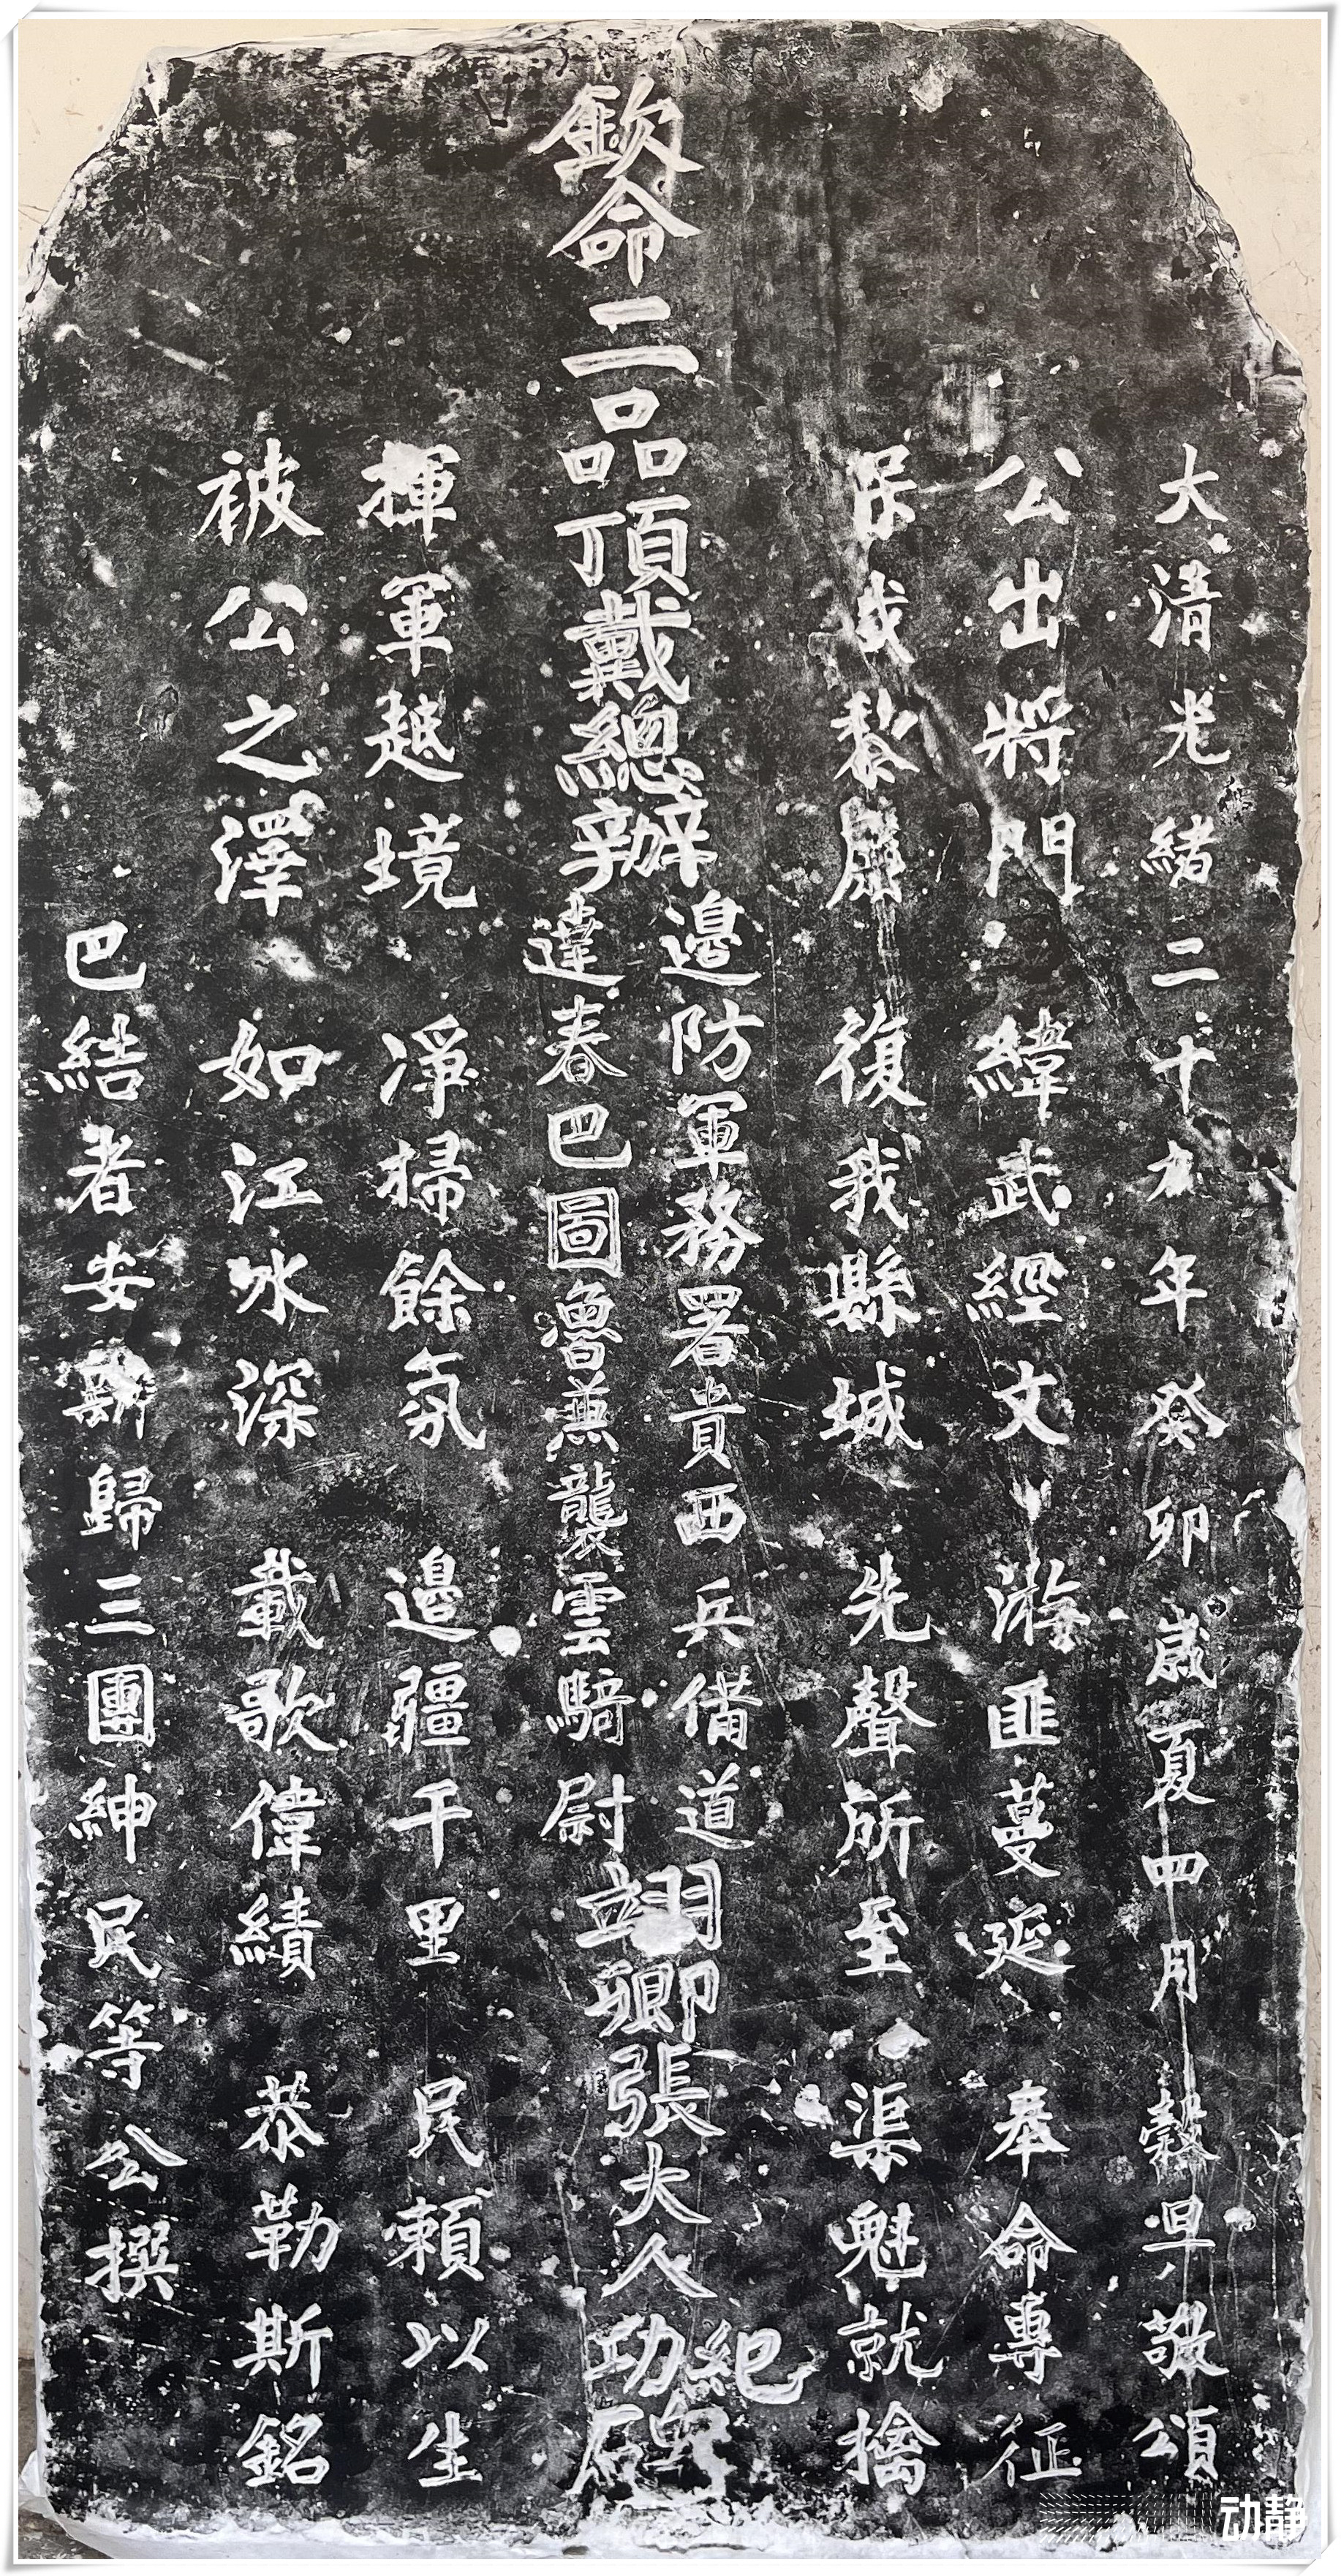 大清光緒二十九年癸卯歲夏四月穀旦敬頌
公出將門 緯武經文 游匪蔓延 奉命專征
保我黎庶 復我縣城 先聲所至 渠魁就擒
欽命二品頂戴總辦邊防軍務署貴西兵備道達春巴圖魯兼襲雲騎尉翊卿張大人紀功碑石
揮軍越境 淨掃餘氛 邊疆千里 民賴以生
被公之澤 如江水深 載歌偉績 恭勒斯銘
巴結者安新歸三團紳民等公撰
动静